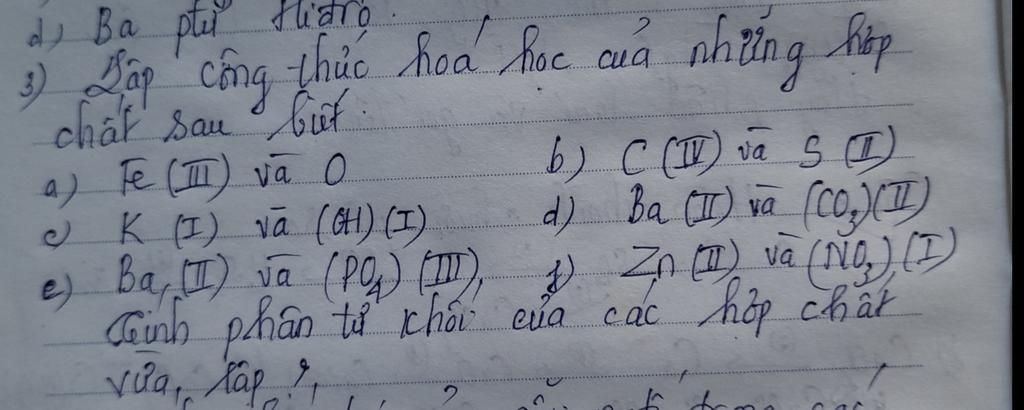 d) Ba ptử Hiđro.
3) Lập công thức hoá học của những hợp
chất sau biết:
a) Fe (III) và O b) C (IV) và S (II)
c) K (I) và (OH) (I) d) Ba (II) và (CO₃)(II)
e) Ba (II) và (PO₄) (III), f) Zn (II) và (NO₃) (I)
Tính phân tử khối của các hợp chất
vừa lập ?